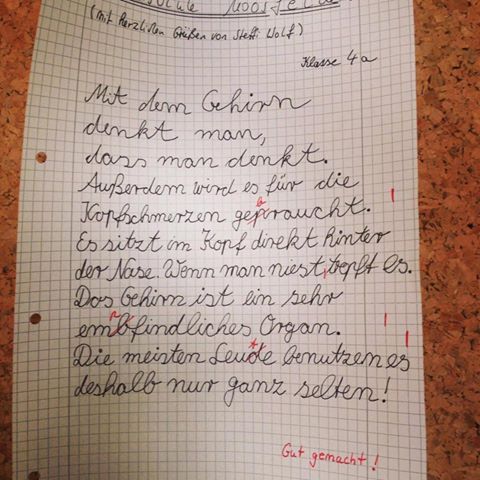 (mit herzlichen Grüßen von Steffi Wolf)
Klasse 4a
Mit dem Gehirn
denkt man,
dass man denkt.
Außerdem wird es für die
Kopfschmerzen gepraucht.
Es sitzt im Kopf direkt hinter
der Nase. Wenn man niest, tropft es.
Das Gehirn ist ein sehr
embfindliches Organ.
Die meisten Leude benutzen es
deshalb nur ganz selten!
Gut gemacht!